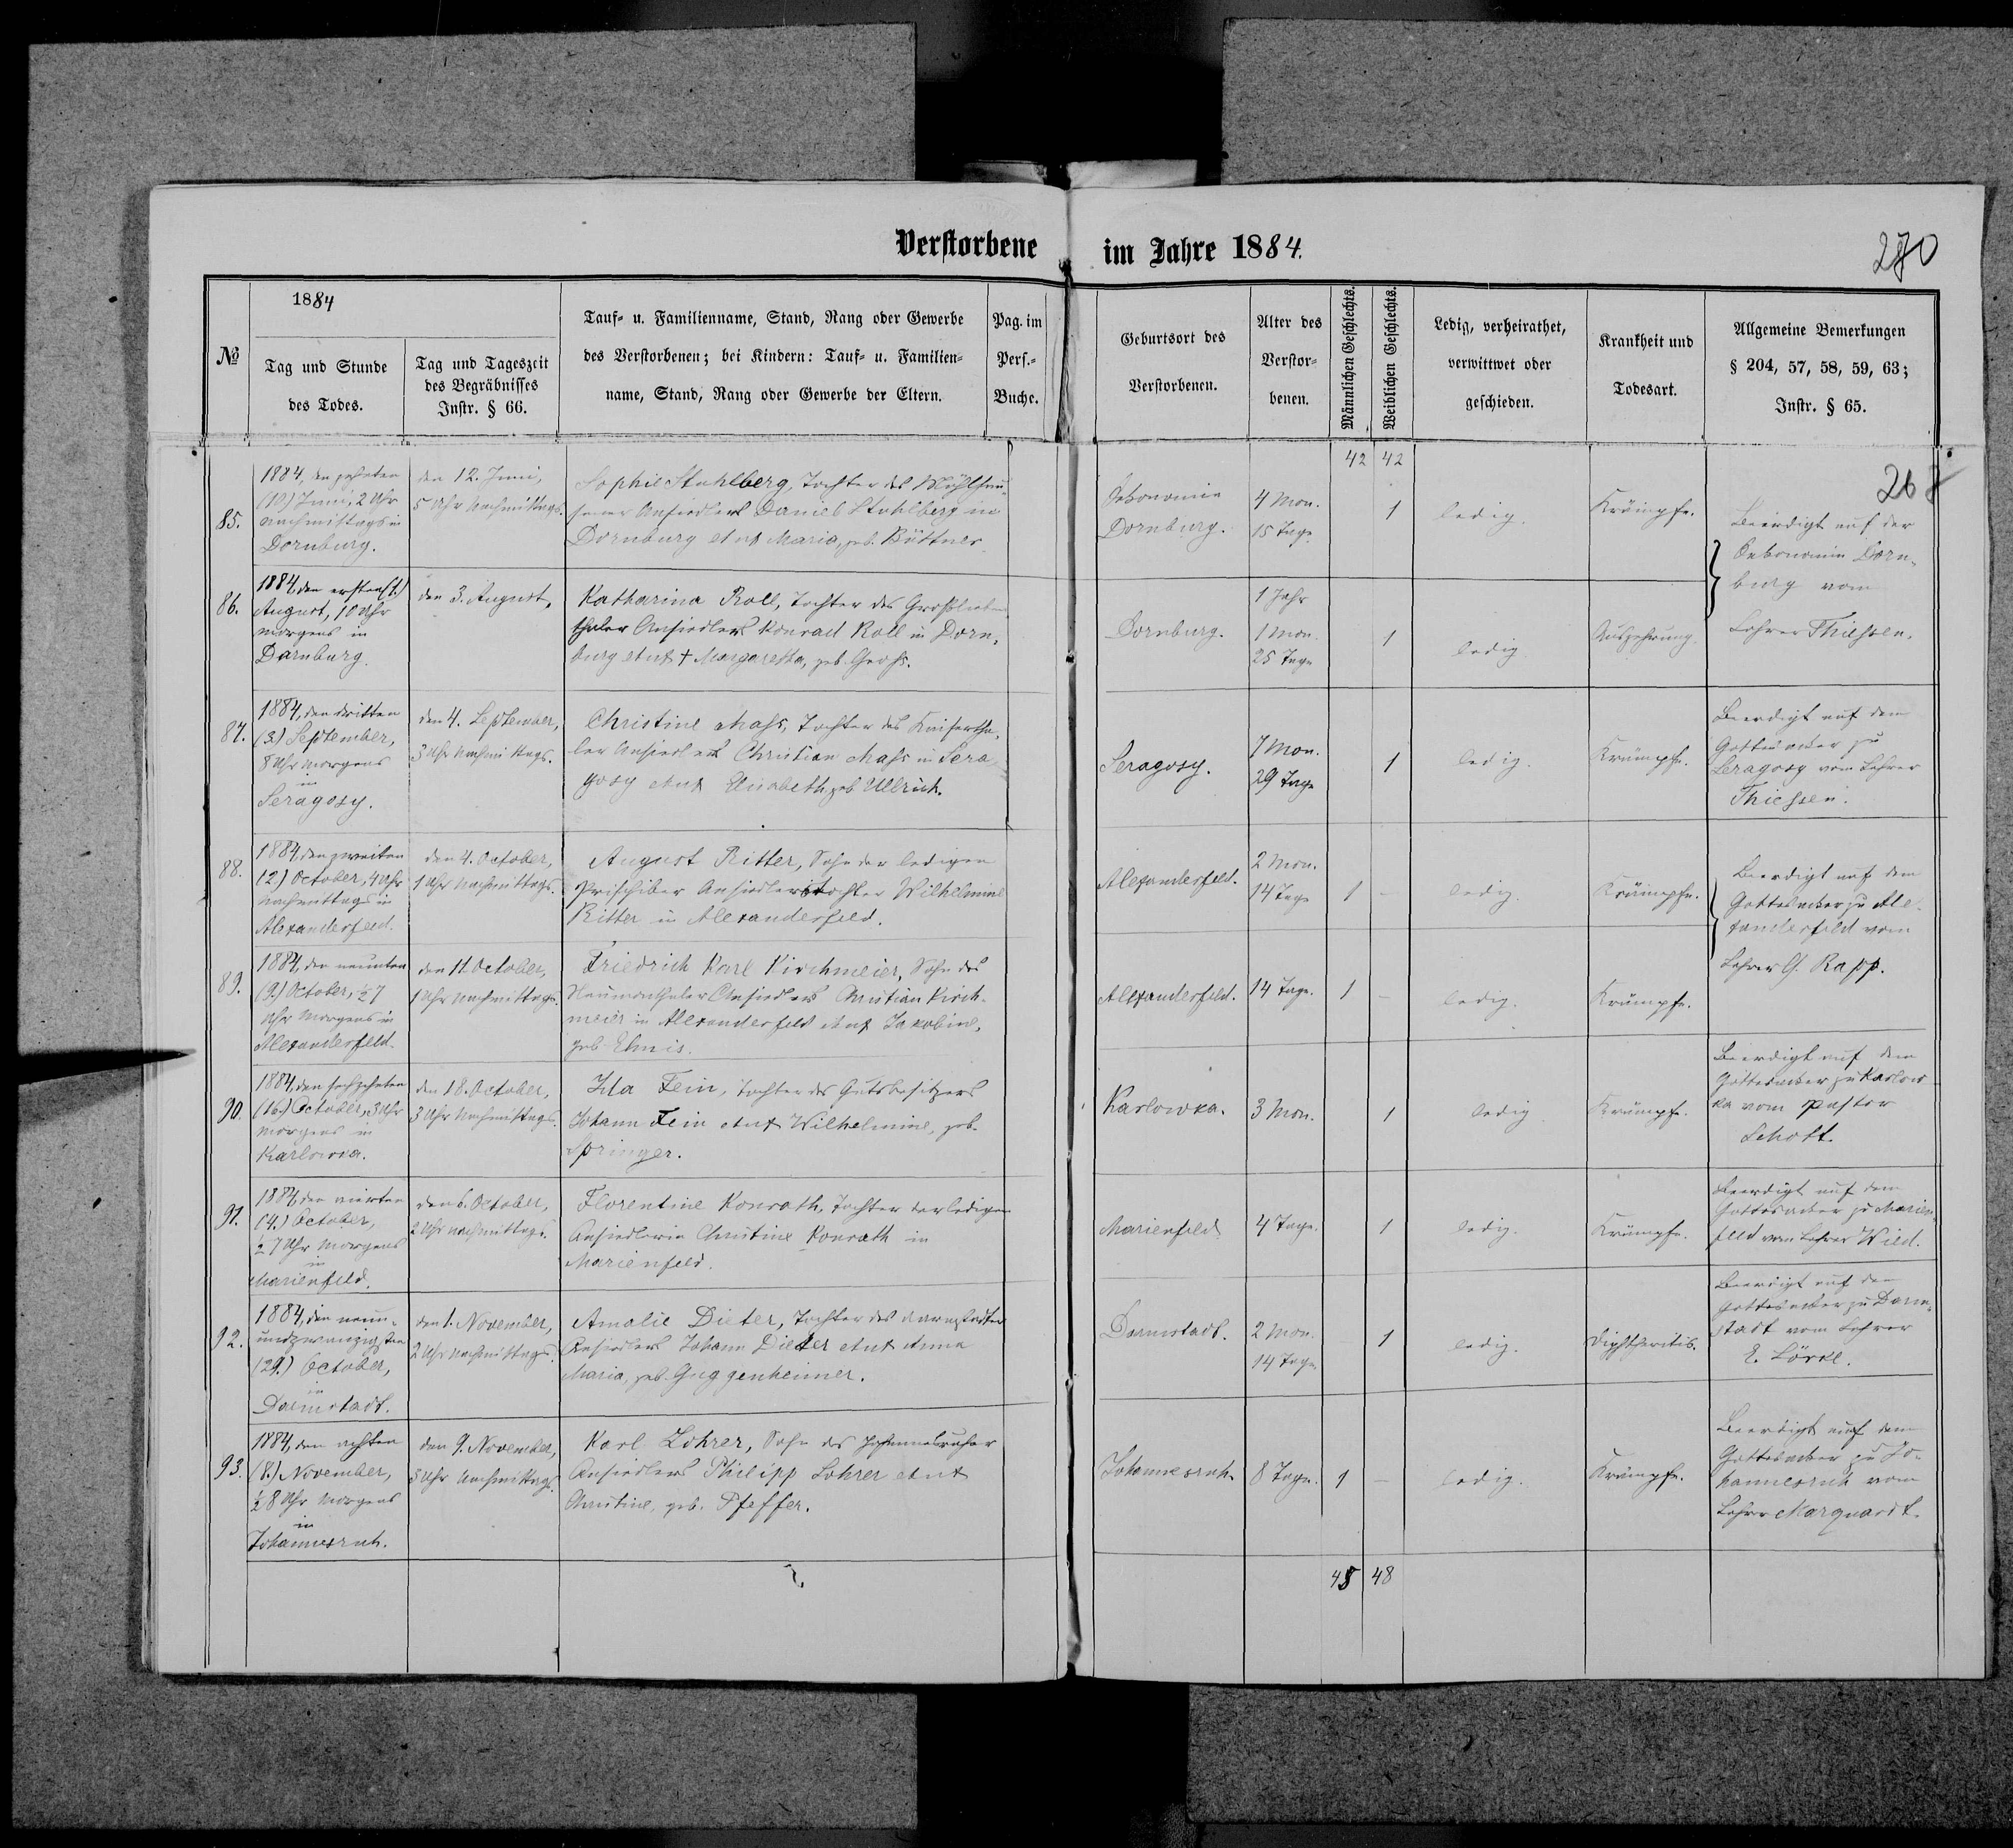 Verstorbene im Jahre 1884.
280
1884
№
Tag und Stunde
des Todes.
Tag und Tageszeit
des Begräbnisses
Instr. § 66.
Tauf- u. Familienname, Stand, Rang oder Gewerbe
des Verstorbenen; bei Kindern: Tauf- u. Familien-
name, Stand, Rang oder Gewerbe der Eltern.
Pag. im
Pers.-
Buche.
Geburtsort des
Verstorbenen.
Alter des
Verstor-
benen.
Männlichen Geschlechts.
Weiblichen Geschlechts.
Ledig, verheirathet,
verwittwet oder
geschieden.
Krankheit und
Todesart.
Allgemeine Bemerkungen
§ 204, 57, 58, 59, 63;
Instr. § 65.
42 42
85.
1884, den zehnten
(10.) Juni, 2 Uhr
Nachmittags in
Dornburg.
den 12. Juni,
5 Uhr Nachmittags.
Sophie Stuhlberg, Tochter des Mühlhau-
sener Ansiedlers Daniel Stuhlberg in
Dornburg und Maria, geb. Büttner
Oekonomie
Dornburg.
4 Mon.
15 Tage
1
ledig.
Krämpfe.
Beerdigt auf der
Oekonomie Dorn-
burg vom
Lehrer Thiessen.
86.
1884, den ersten (1.)
August, 10 Uhr
morgens in
Dornburg.
den 3. August,
Katharina Roll, Tochter des Großlieben
thaler Ansiedlers Konrad Roll in Dorn-
burg und † Margaretha, geb. Groß.
Dornburg.
1 Jahr
1 Mon.
25 Tage
1
ledig.
Auszehrung.
87.
1884, den dritten
(3.) September,
8 Uhr Morgens
in
Seragosy.
den 4. September,
3 Uhr Nachmittags.
Christine Mass, Tochter des Kaisertha-
ler Ansiedlers Christian Mass in Sera
gosy und Elisabeth geb Ullrich.
Seragosy.
7 Mon.
29 Tage
1
ledig.
Krämpfe.
Beerdigt auf dem
Gottesacker zu
Seragosy vom Lehrer
Thiessen.
88.
1884, den zweiten
(2.) October, 4 Uhr
nachmittags in
Alexanderfeld.
den 4. October,
1 Uhr Nachmittags.
August Ritter, Sohn der ledigen
Prischiber Ansiedlerstochter Wilhelmine
Ritter in Alexanderfeld.
Alexanderfeld.
2 Mon.
14 Tage
1 –
ledig.
Krämpfe.
Beerdigt auf dem
Gottesacker zu Ale-
xanderfeld vom
Lehrer G. Rapp.
89.
1884, den neunten
(9.) October, ½ 7
Uhr Morgens in
Alexanderfeld.
den 11. October,
1 Uhr Nachmittags.
Friedrich Karl Kirchmeier, Sohn des
Neumonthaler Ansiedlers Christian Kirch-
meier in Alexanderfeld und Jakobine,
geb.
Alexanderfeld.
14 Tage.
1 –
ledig.
Krämpfe.
90.
1884, den sechzehnten
(16.) October, 3 Uhr
morgens in
Karlowka.
den 18. October,
3 Uhr Nachmittags.
Ida Fein, Tochter des Gutsbesitzers
Johann Fein und Wilhelmine, geb.
Springer.
Karlowka.
3 Mon.
1
ledig
Krämpfe.
Beerdigt auf dem
Gottesacker zu Karlow-
ka vom Pastor
Schott.
91.
1884, den vierten
(4.) October,
½ 7 Uhr Morgens
in
Marienfeld.
den 6. October,
2 Uhr nachmittags.
Florentine Konrath, Tochter der ledigen
Ansiedlerin Christine Konrath in
Marienfeld.
Marienfeld
4 Tage.
1
ledig.
Krämpfe.
Beerdigt auf dem
Gottesacker zu Marien-
feld vom Lehrer Wild.
92.
1884, den neun-
undzwanzigsten
(29.) October,
in
Darmstadt.
den 1. November,
2 Uhr Nachmittags.
Amalie Dieter, Tochter des Darmstädter
Ansiedlers Johann Dieter und Anna
Maria, geb. Guggenheimer.
Darmstadt.
2 Mon.
14 Tage
1
ledig.
Diphtheritis.
Beerdigt auf dem
Gottesacker zu Darm-
stadt vom Lehrer
E.
93.
1884, den achten
(8.) November,
½ 8 Uhr Morgens
in
Johannesruh.
den 9. November,
3 Uhr Nachmittags.
Karl Lohrer, Sohn des Johannesruher
Ansiedlers Philipp Lohrer und
Christine, geb. Pfeffer.
Johannesruh.
8 Tage.
1 –
ledig.
Krämpfe.
Beerdigt auf dem
Gottesacker zu Jo-
hannesruh vom
Lehrer Marquardt.
45 48